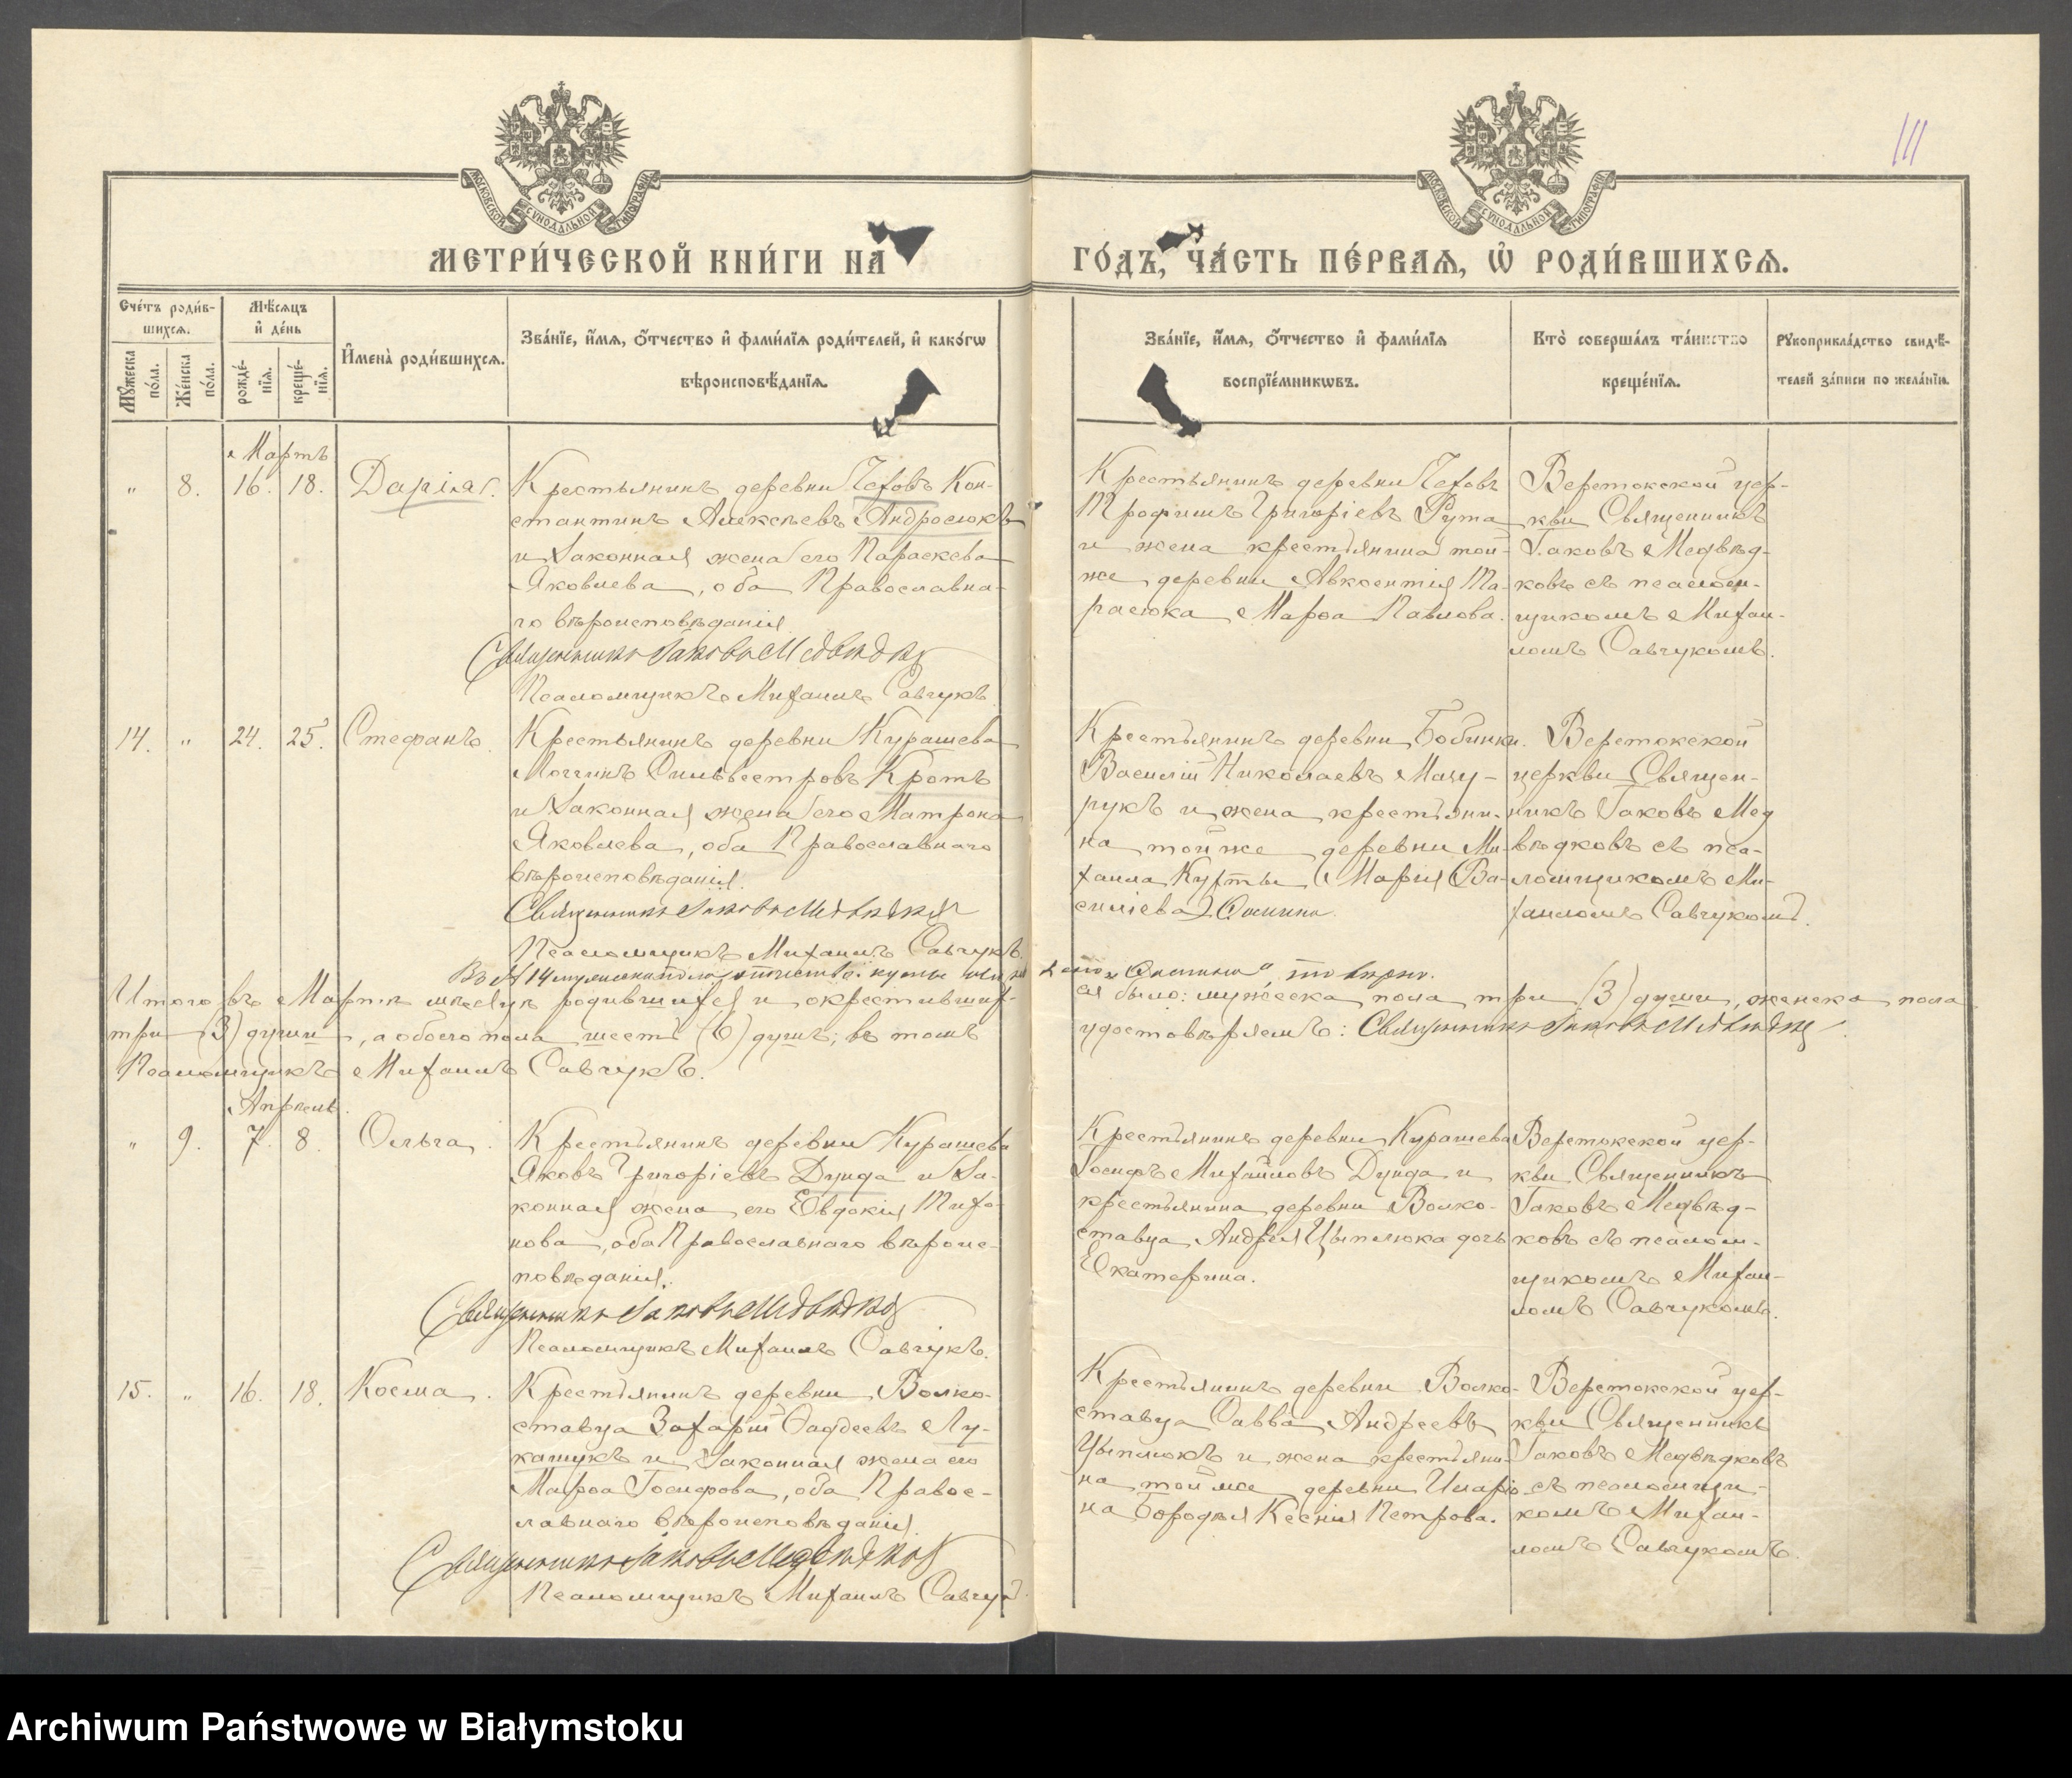 МОСКОВСКОЙ СѴНОДАЛЬНОЙ ТИПОГРАФІИ
МОСКОВСКОЙ СѴНОДАЛЬНОЙ ТИПОГРАФІИ
111
МЕТРИ́ЧЕСКОЙ КНИ́ГИ НА̀
ГО́ДЪ, ЧА́СТЬ ПЕ́РВАѦ, Ѡ҆ РОДИ́ВШИХСѦ.
Сче́тъ роди́в-
шихсѧ.
Мѣ́сѧцъ
и҆ де́нь
Мꙋ́жеска по́ла.
Же́нска по́ла.
рожде́-нїѧ.
креще́-нїѧ.
И҆мена̀ роди́вшихсѧ.
Зва́нїе, и҆́мѧ, ѻ҆́тчество и҆ фами́лїѧ роди́телей, и҆ како́гѡ
вѣроисповѣ́данїѧ.
Зва́нїе, и҆́мѧ, ѻ҆́тчество и҆ фами́лїѧ
воспрїе́мникѡвъ.
Кто̀ соверша́лъ та́инство
креще́нїѧ.
Рꙋкоприкла́дство свидѣ́-
телей за́писи по жела́нїю.
Мартъ
" 8. 16. 18. Дарія
Крестьянинъ деревни Чеховъ Кон-
стантинъ Алексѣевъ Андросюкъ
и законная жена его Параскева
Яковлева, оба Православна-
го вѣроисповѣданія.
Священникъ Іаковъ Медвѣдковъ
Псаломщикъ Михаилъ Савчукъ.
Крестьянинъ деревни Чеховъ
Трофимъ Григоріевъ Рута
и жена крестьянина той-
же деревни Авксентія Та-
расюка Марѳа Павлова.
Верстокской цер-
кви Священникъ
Іаковъ Медвѣд-
ковъ съ псалом-
щикомъ Михаи-
ломъ Савчукомъ.
14. " 24. 25. Стефанъ
Крестьянинъ деревни Курашева
Логгинъ Сильвестровъ Кротъ
и законная жена его Матрона
Яковлева, оба Православнаго
вѣроисповѣданія.
Священникъ Іаковъ Медвѣдковъ
Псаломщикъ Михаилъ Савчукъ.
Крестьянинъ деревни Бобинки
Василій Николаевъ Мазу-
рукъ и жена крестьяни-
на тойже деревни Ми-
хаила Купты (Марія Ва-
силіева) Осипина
Верстокской
церкви Священ-
никъ Іаковъ Мед
вѣдковъ съ пса-
ломщикомъ Ми-
хаиломъ Савчукомъ.
Итого въ Мартѣ мѣсяцѣ родившихся и окрестивших-
ся было: мужеска пола три (3) души, женска пола
три (3) души, а обоего пола шесть (6) душъ; въ томъ
удостовѣряемъ: Священникъ Іаковъ Медвѣдковъ
Псаломщикъ Михаилъ Савчукъ.
Апрѣль.
" 9. 7. 8. Ольга
Крестьянинъ деревни Курашева
Яковъ Григоріевъ Дунда и за-
конная жена его Евдокія Тихо-
нова, оба Православнаго вѣроис-
повѣданія.
Священникъ Іаковъ Медвѣдковъ
Псаломщикъ Михаилъ Савчукъ.
Крестьянинъ деревни Курашева
Іосифъ Михайловъ Дунда и
крестьянина деревни Волко-
ставца Андрея Цыплюка дочь
Екатерина.
Верстокской цер-
кви Священникъ
Іаковъ Медвѣд-
ковъ съ псалом-
щикомъ Михаи-
ломъ Савчукомъ.
15. " 16. 18. Косма
Крестьянинъ деревни Волко-
ставца Захарій Фаддеевъ Лу-
кашукъ и законная жена его
Марѳа Іосифова, оба Правос-
лавнаго вѣроисповѣданія.
Священникъ Іаковъ Медвѣдковъ
Псаломщикъ Михаилъ Савчукъ
Крестьянинъ деревни Волко-
ставца Савва Андреевъ
Цыплюкъ и жена крестьяни-
на тойже деревни Иларіо-
на Бородья Ксенія Петрова.
Верстокской цер-
кви Священникъ
Іаковъ Медвѣдковъ
съ псаломщи-
комъ Михаи-
ломъ Савчукомъ.
Archiwum Państwowe w Białymstoku